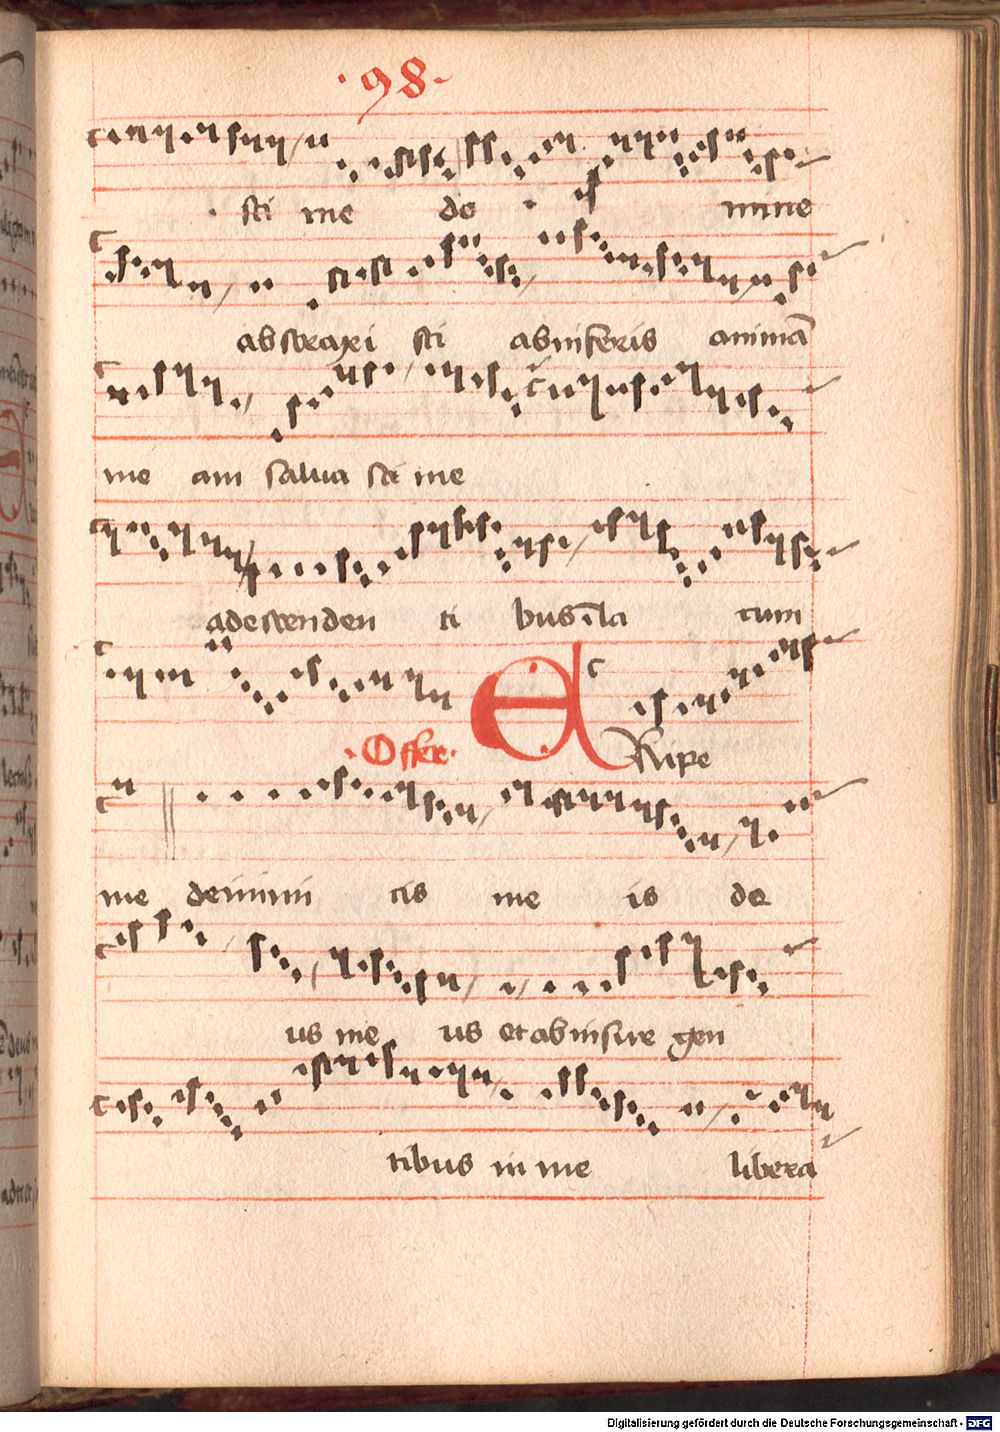 ·98·
sti me do mine
abstraxi sti abinferis animā
me am salua sti me
adescenden ti bus ī la cum
·Offer· ERipe
me deinimi cis me is de
us me us et abinsure gen
tibus in me libera
Digitalisierung gefördert durch die Deutsche Forschungsgemeinschaft - DFG